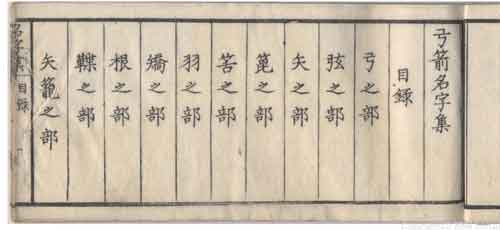 弓箭名字集
目録
弓之部
弦之部
矢之部
箆之部
筈之部
羽之部
矯之部
根之部
鞢之部
矢籠之部
名字集
目録